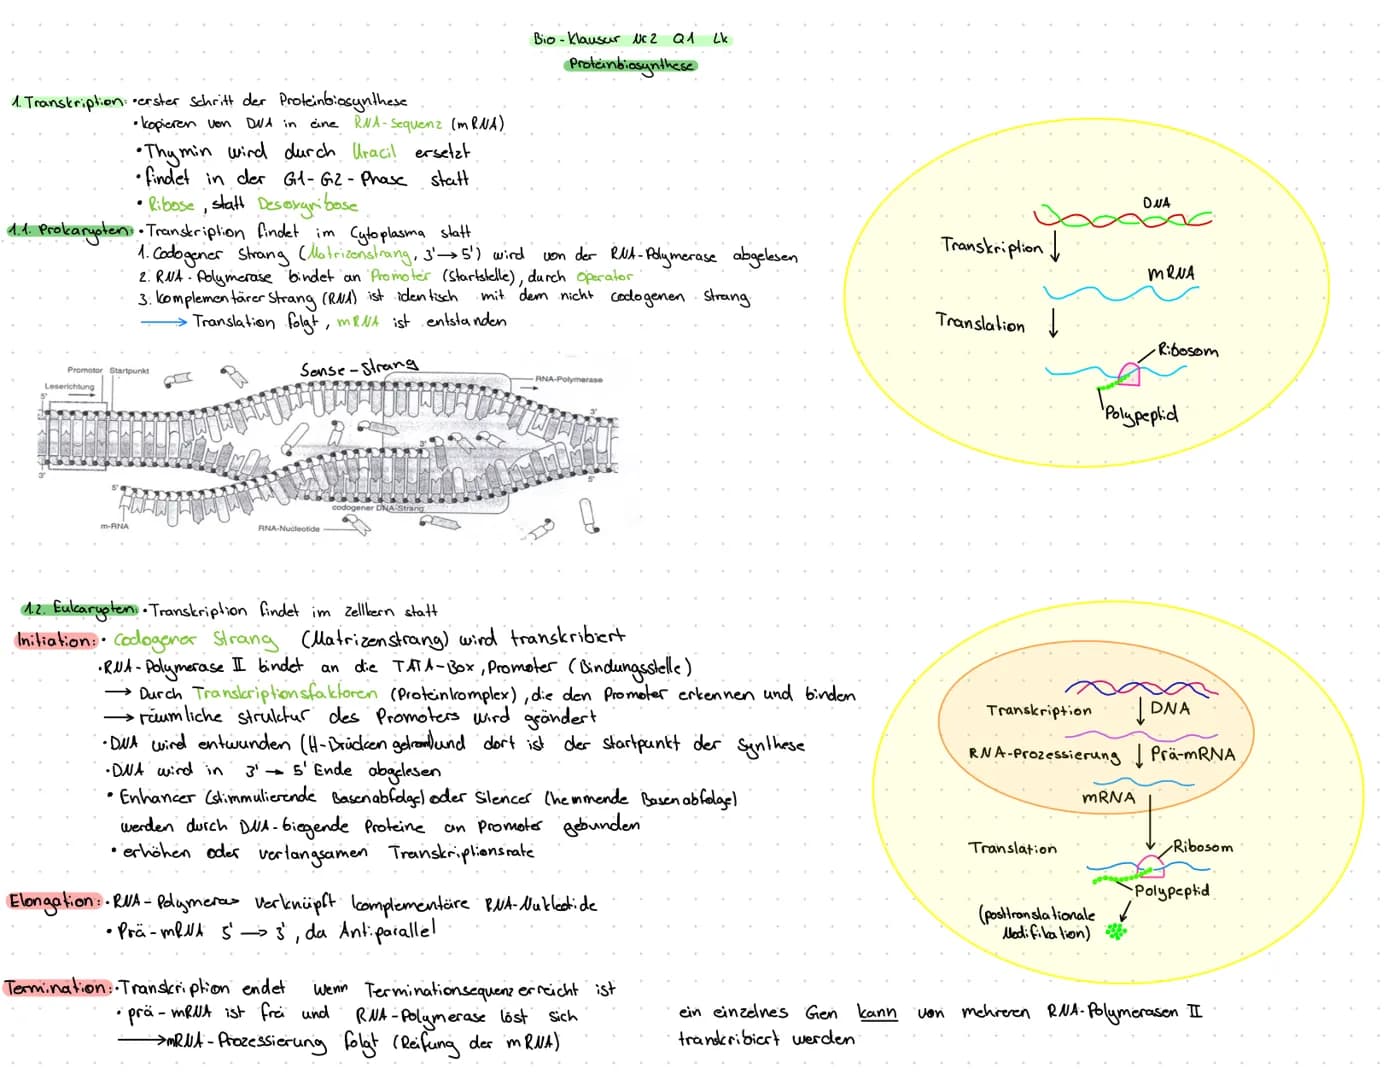 Bio-Klausur Nr.2 Q1 Lk
Proteinbiosynthese
1. Transkription: • erster Schritt der Proteinbiosynthese
• kopieren von DNA in eine RNA-Sequenz (mRNA)
• Thymin wird durch Uracil ersetzt
• findet in der G1-G2-Phase statt
• Ribose, statt Desoxyribose
1.1. Prokaryoten: • Transkription findet im Cytoplasma statt
1. Codogener Strang (Matrizenstrang, 3' → 5') wird von der RNA-Polymerase abgelesen
2. RNA-Polymerase bindet an Promoter (Startstelle), durch Operator
3. Komplementärer Strang (RNA) ist identisch mit dem nicht codogenen Strang
→ Translation folgt, mRNA ist entstanden
DNA
Transkription
mRNA
Translation
Ribosom
Polypeptid
Sense-Strang
Promotor Startpunkt
Leserichtung
RNA-Polymerase
5'
3'
3'
3'
5'
5'
codogener DNA-Strang
m-RNA
RNA-Nucleotide
1.2. Eukaryoten: • Transkription findet im Zellkern statt
Initiation: • Codogener Strang (Matrizenstrang) wird transkribiert
• RNA-Polymerase II bindet an die TATA-Box, Promoter (Bindungsstelle)
→ Durch Transkriptionsfaktoren (Proteinkomplex), die den Promoter erkennen und binden
→ räumliche Struktur des Promoters wird geändert
• DNA wird entwunden (H-Brücken getrennt) und dort ist der Startpunkt der Synthese
• DNA wird in 3' → 5' Ende abgelesen
• Enhancer (stimmulierende Basenabfolge) oder Silencer (hemmende Basenabfolge)
werden durch DNA-biegende Proteine an Promoter gebunden
• erhöhen oder verlangsamen Transkriptionsrate
Elongation: • RNA-Polymerase verknüpft komplementäre RNA-Nukleotide
• Prä-mRNA 5' → 3', da Antiparallel
Termination: • Transkription endet wenn Terminationsequenz erreicht ist
• prä-mRNA ist frei und RNA-Polymerase löst sich
→ mRNA-Prozessierung folgt (Reifung der mRNA)
Transkription
DNA
RNA-Prozessierung
Prä-mRNA
mRNA
Translation
Ribosom
Polypeptid
(posttranslationale
Modifikation)
ein einzelnes Gen kann von mehreren RNA-Polymerasen II
transkribiert werden